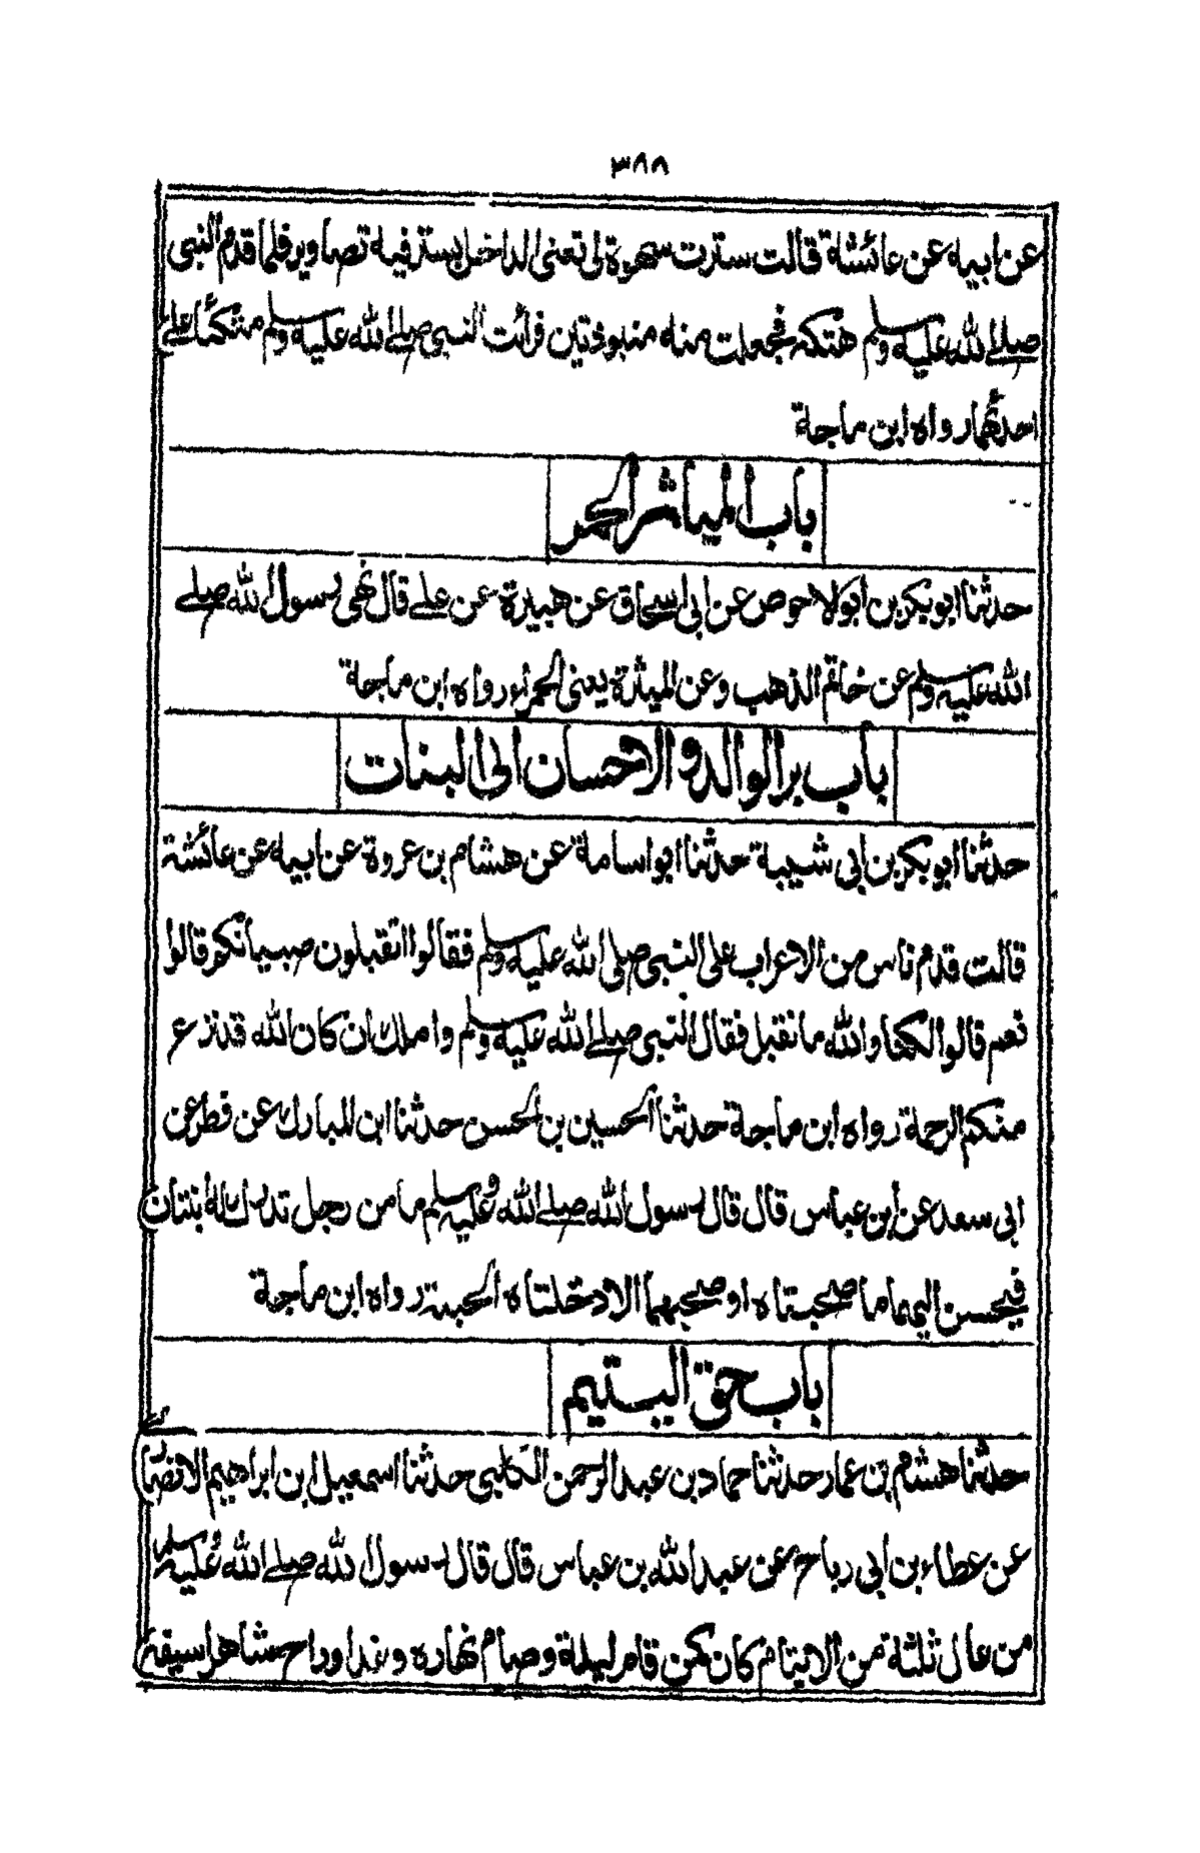 ٣٨٨
عن ابيه عن عائشة قالت سترت سهوة لى تعنى الداخل بستر فيه تصاوير فلما قدم النبى
صلى الله عليه وسلم هتكه فجعلت منه منبوذتين فرأيت النبى صلى الله عليه وسلم متكئا على
احدٰهما رواه ابن ماجة
باب المياثر الحمر
حدثنا ابوبكر بن ابو الاحوص عن ابى اسحاق عن هبيرة عن على قال نهى رسول الله صلى
الله عليه وسلم عن خاتم الذهب وعن الميثرة يعنى الحمراء رواه ابن ماجة
باب بر الوالد والاحسان الى البنات
حدثنا ابوبكر بن ابى شيبة حدثنا ابو اسامة عن هشام بن عروة عن ابيه عن عائشة
قالت قدم ناس من الاعراب على النبى صلى الله عليه وسلم فقالوا اتقبلون صبيانكم قالوا
نعم قالوا لكنا والله ما نقبل فقال النبى صلى الله عليه وسلم واملك ان كان الله قد نزع
منكم الرحمة رواه ابن ماجة حدثنا الحسين بن الحسن حدثنا ابن المبارك عن فطر عن
ابى سعد عن ابن عباس قال قال رسول الله صلى الله عليه وسلم ما من رجل تدرك له ابنتان
فيحسن اليهما ما صحبتاه او صحبهما الا دخلتاه الجنة رواه ابن ماجة
باب حق اليتيم
حدثنا هشام بن عمار حدثنا حماد بن عبد الرحمن الكلبى حدثنا اسمعيل ابن ابراهيم الانصارى
عن عطاء بن ابى رباح عن عبد الله بن عباس قال قال رسول الله صلى الله عليه وسلم
من عال ثلثة من الايتام كان كمن قام ليله وصام نهاره وغدا وراح شاهرا سيفه